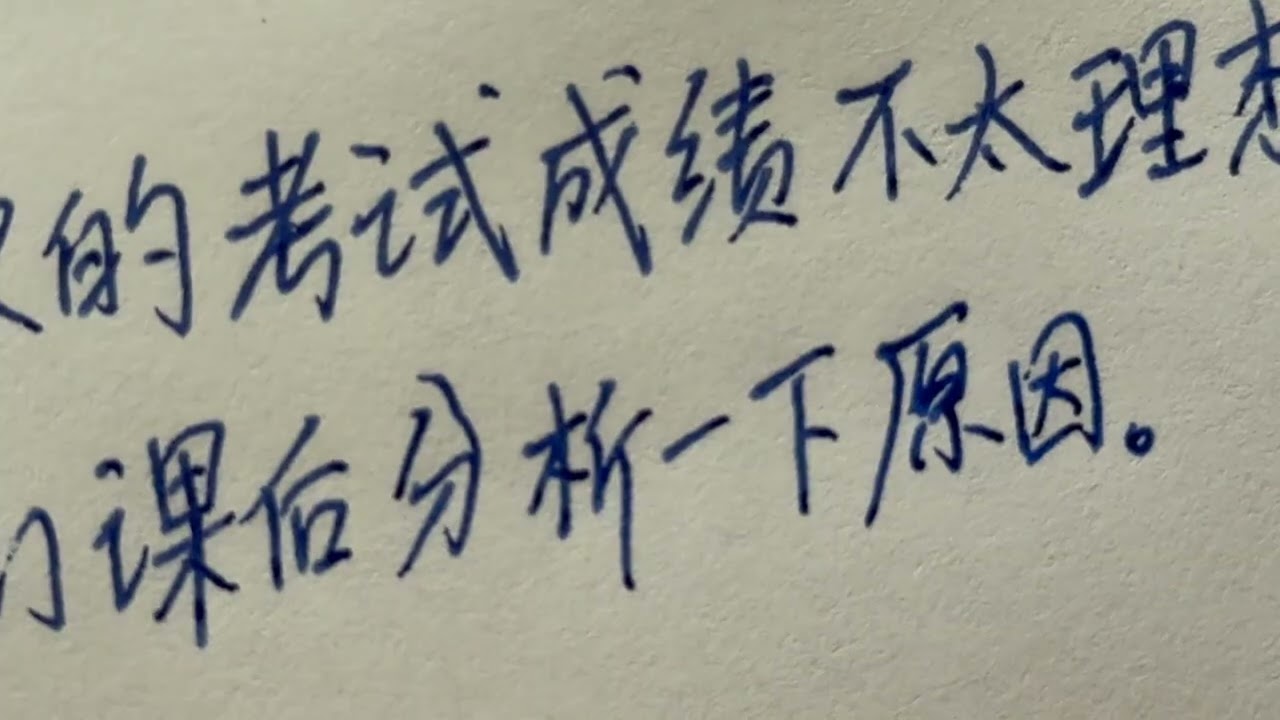 的考试成绩不太理想
课后分析一下原因。